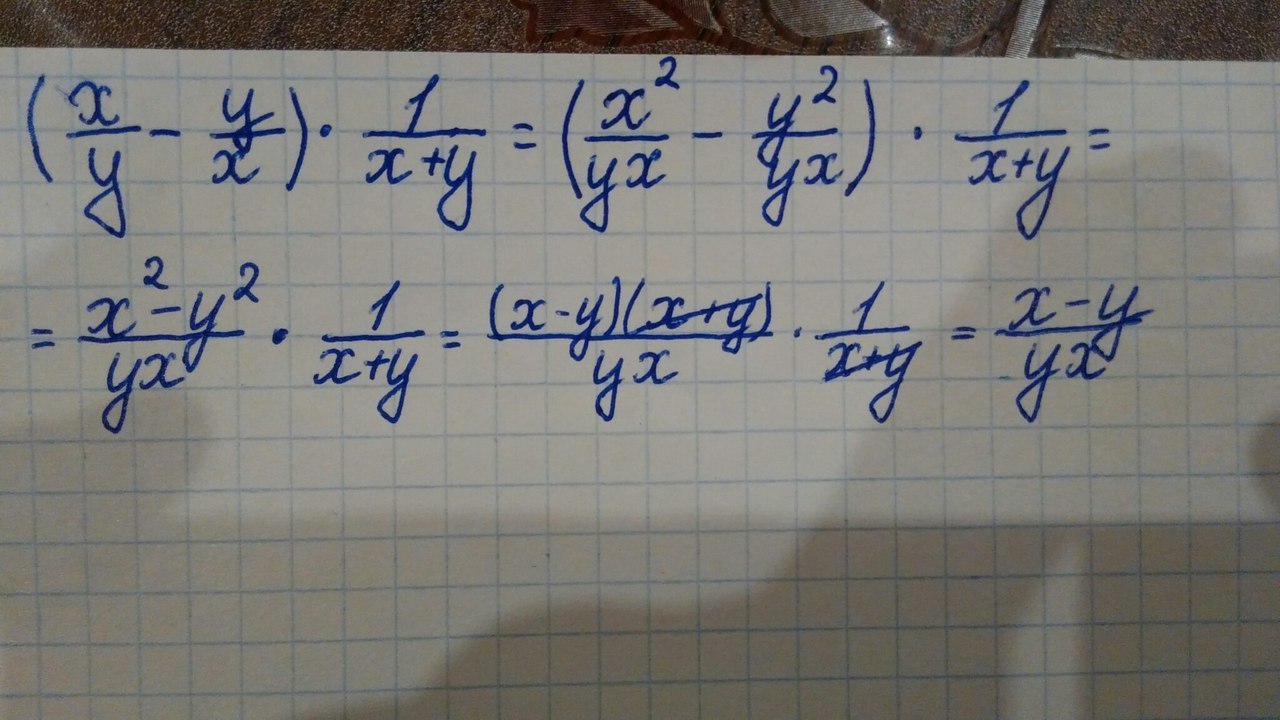 (x/y - y/x) · 1/(x+y) = (x²/yx - y²/yx) · 1/(x+y) =
= (x²-y²)/yx · 1/(x+y) = (x-y)(x+y)/yx · 1/(x+y) = (x-y)/yx